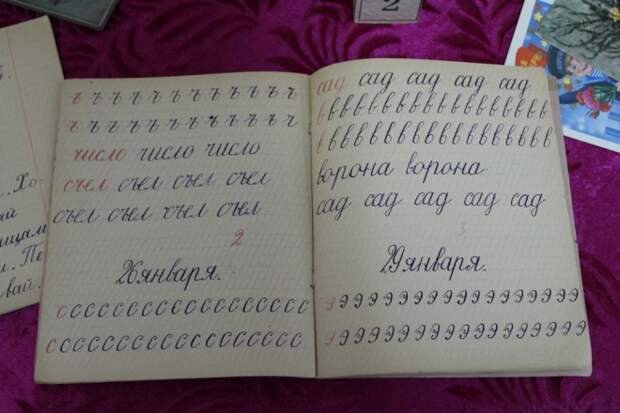 ъ ъ ъ ъ ъ ъ ъ ъ ъ ъ ъ ъ
ъ ъ ъ ъ ъ ъ ъ ъ ъ ъ ъ ъ
число число число
съел съел съел съел
съел съел съел съел
2
26 января.
с с с с с с с с с с с с с с с с с с
с с с с с с с с с с с с с с с с с с
сад сад сад сад сад
в в в в в в в в в в в в в в в в в в
в в в в в в в в в в в в в в в в в в
ворона ворона
сад сад сад сад сад
3
29 января.
э э э э э э э э э э э э э э э э э э
э э э э э э э э э э э э э э э э э э
. Хо
ай
ницам
и. Пе
вай.
2